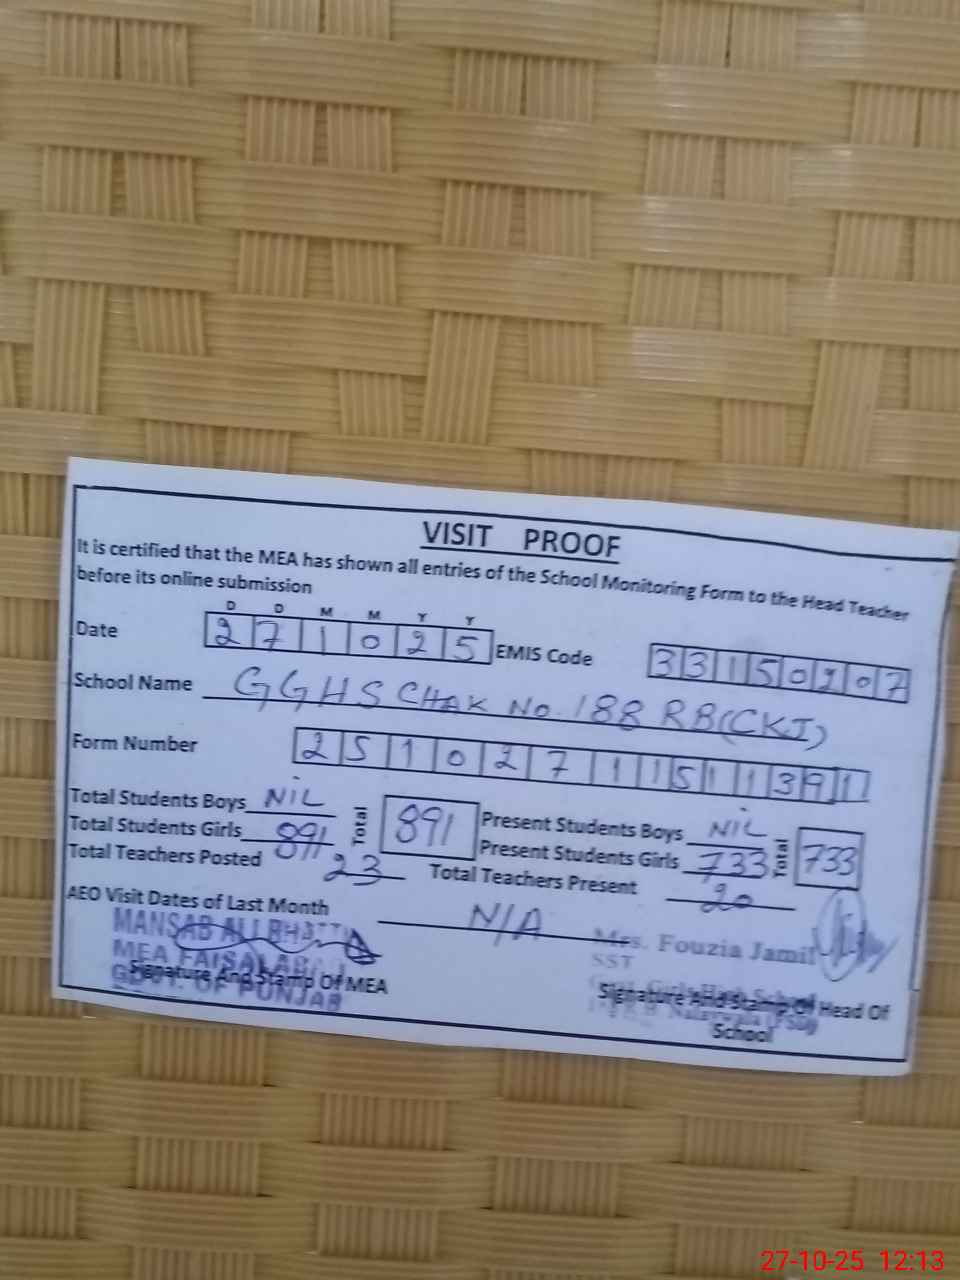 VISIT PROOF
It is certified that the MEA has shown all entries of the School Monitoring Form to the Head Teacher
before its online submission
D D M M Y Y
Date 27 10 25 EMIS Code 33150207
School Name GGHS CHAK No. 188 RB(CKJ)
Form Number 2510271151391
Total Students Boys NIL Total 891 Present Students Boys NIL Total 733
Total Students Girls 891 Present Students Girls 733
Total Teachers Posted 23 Total Teachers Present 20
AEO Visit Dates of Last Month N/A
MANSAB ALI BHATTI
MEA FAISALABAD
GOVT. OF PUNJAB
Signature And Stamp Of MEA
Mrs. Fouzia Jamil
SST
Govt. Girls High School
Signature And Stamp Of Head Of
School
27-10-25 12:13